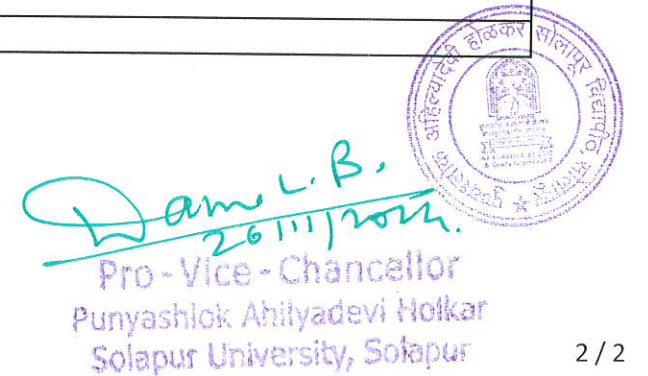 पुण्यश्लोक अहिल्यादेवी होळकर सोलापूर विद्यापीठ, सोलापूर
Dama L. B.
26/11/2024.
Pro-Vice-Chancellor
Punyashlok Ahilyadevi Holkar
Solapur University, Solapur
2/2